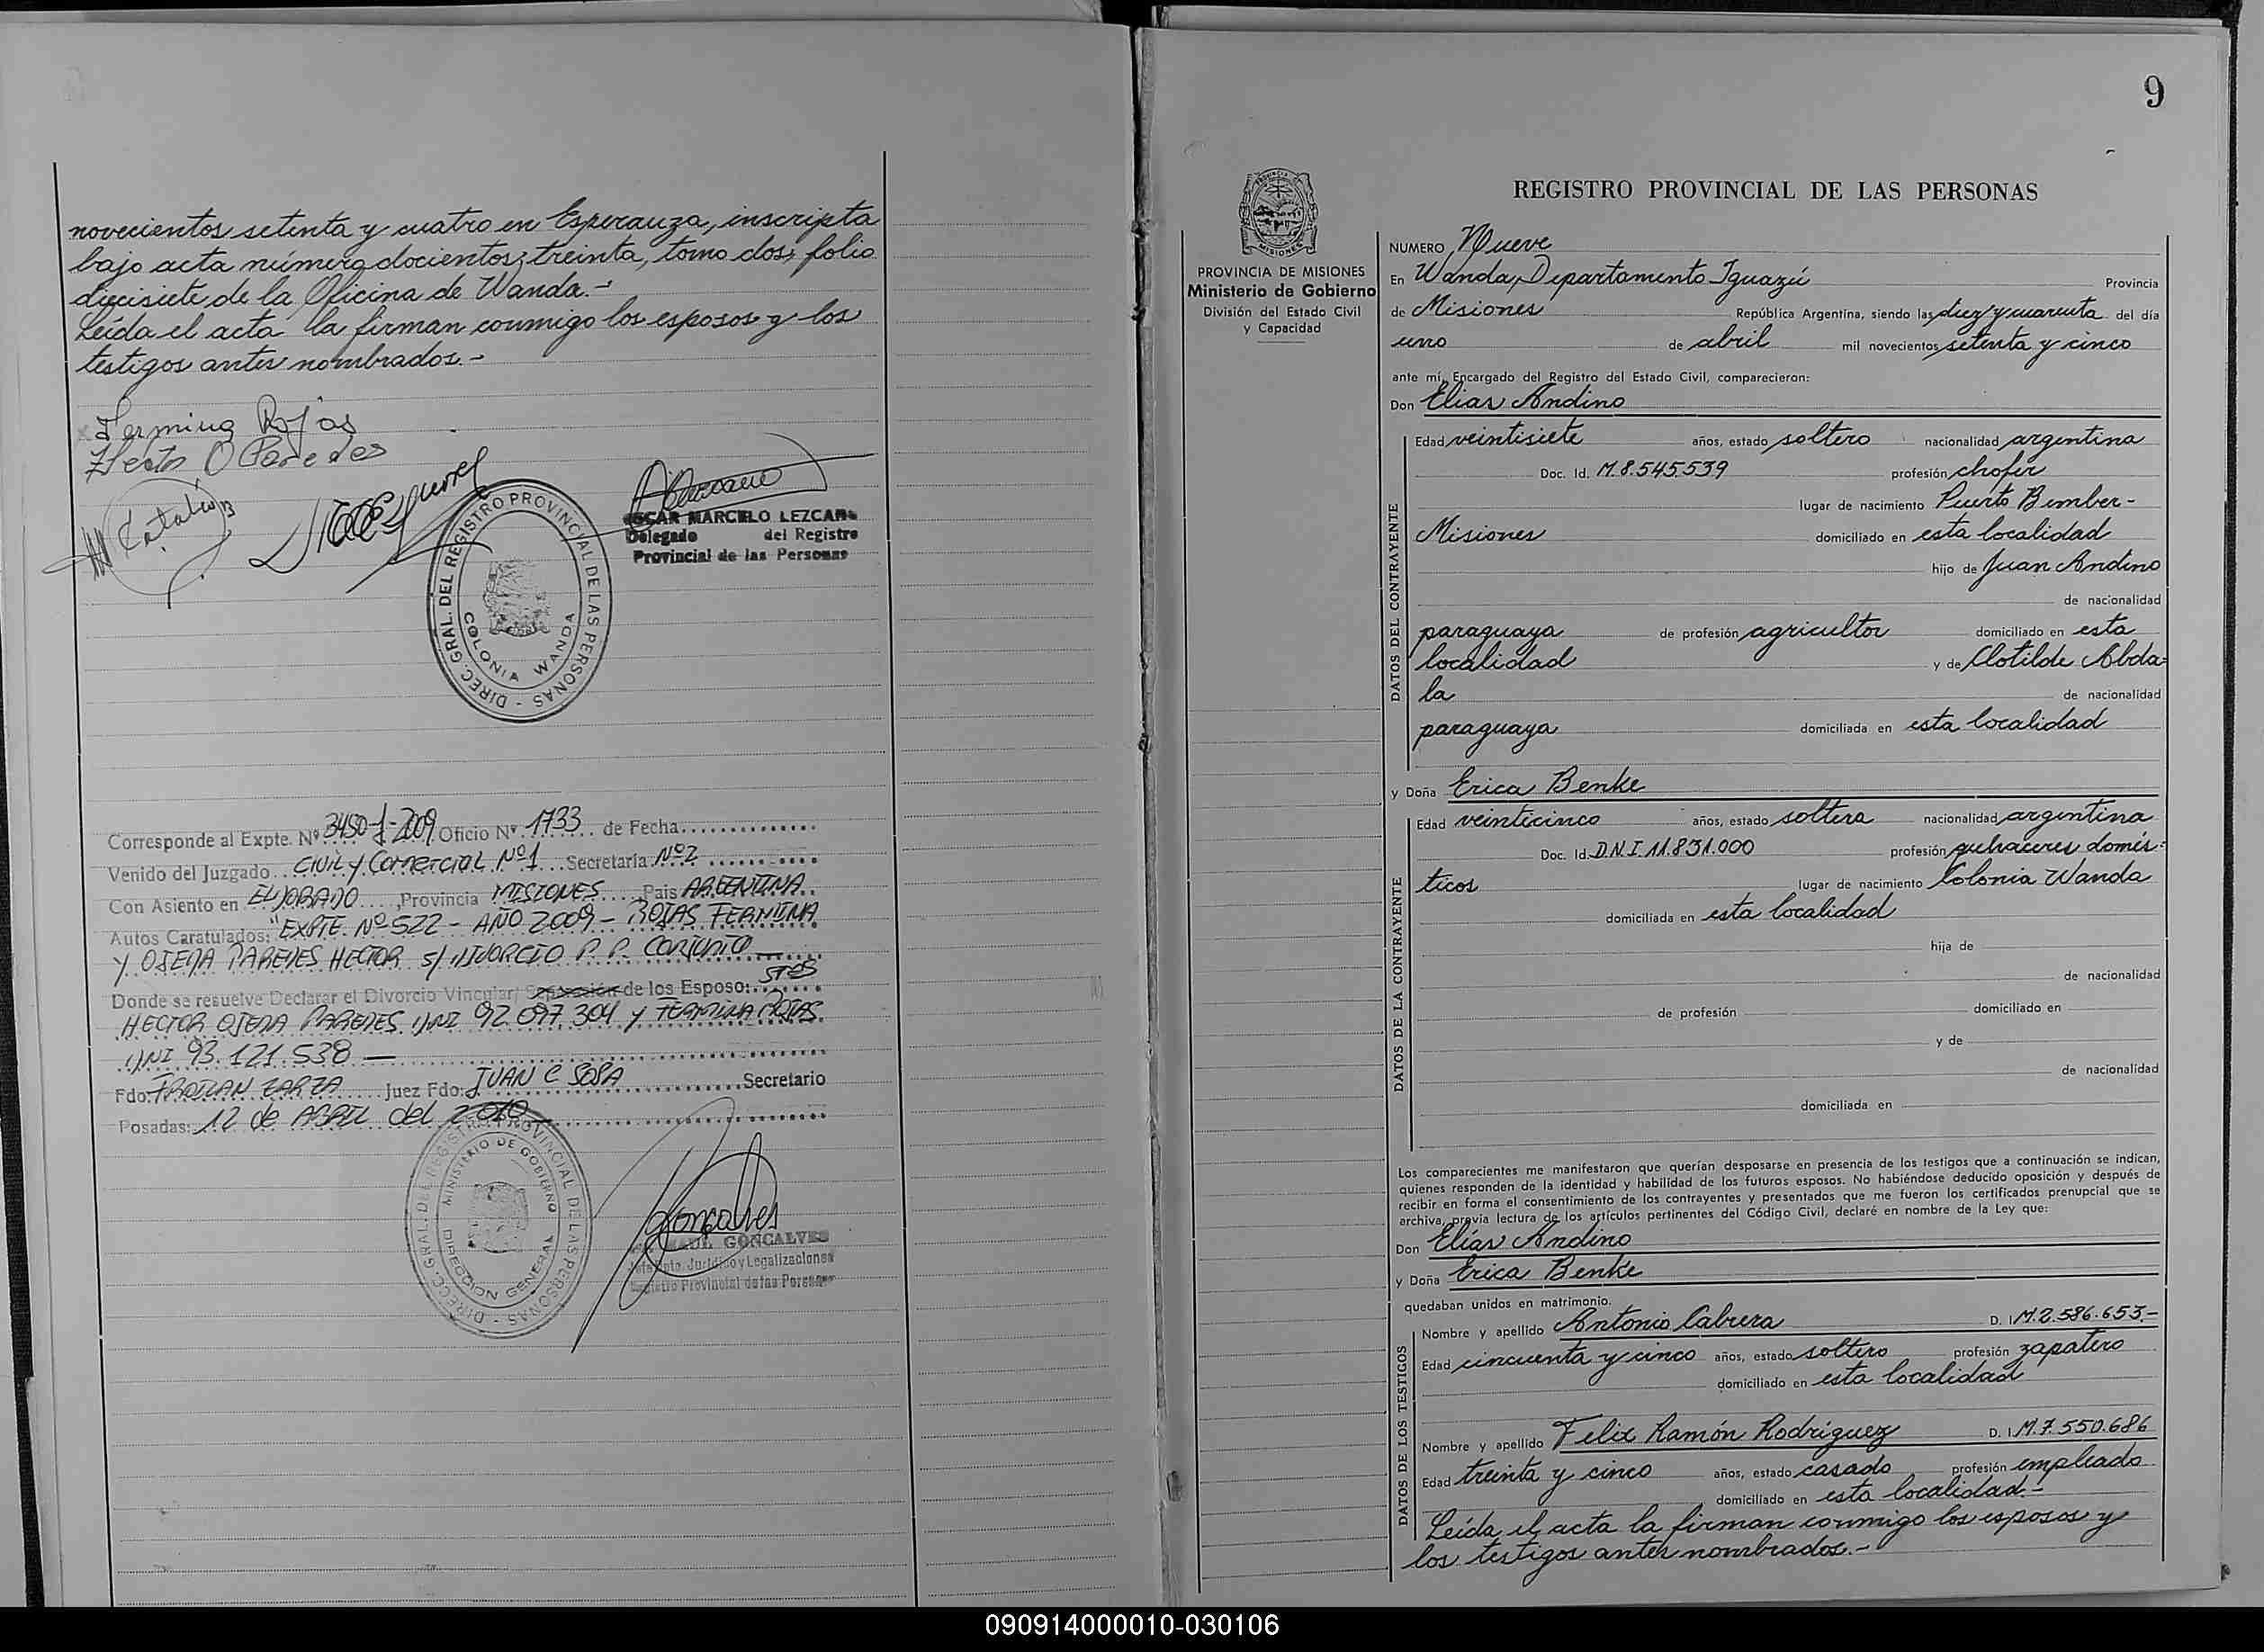 novecientos setenta y cuatro en Esperanza, inscripta
bajo acta número docientos treinta, tomo dos, folio
diecisiete, de la Oficina de Wanda.-
Leída el acta la firman conmigo los esposos y los
testigos antes nombrados.-
Fermina Rojas
Hector O Paredes
Catalio B
OSCAR MARCELO LEZCANO
Delegado del Registro
Provincial de las Personas
DIREC. GRAL. DEL REGISTRO PROVINCIAL DE LAS PERSONAS -
COLONIA WANDA
Corresponde al Expte. Nº 3450-J-2009 Oficio Nº 1733 de Fecha
Venido del Juzgado CIVIL Y COMERCIAL Nº1 Secretaría Nº2
Con Asiento en ELDORADO, Provincia MISIONES, Pais ARGENTINA
Autos Caratulados: "EXPTE. Nº 522 - AÑO 2009 - ROJAS FERMINA
Y OJEDA PAREDES HECTOR S/ DIVORCIO P. P. CONJUNTA
Donde se resuelve Declarar el Divorcio Vincular/ Separación de los Esposo: STES
HECTOR OJEDA PAREDES DNI 92.097.304 Y FERMINA ROJAS
DNI 93.121.538 —
Fdo: FROILAN ZARZA Juez Fdo: JUAN C SOSA Secretario
Posadas: 12 de ABRIL del 2010
DIREC. GRAL. DEL REGISTRO PROVINCIAL DE LAS PERSONAS -
MINISTERIO DE GOBIERNO
DIRECCION GENERAL
Goncalves
RAUL GONCALVES
Jefe Dpto. Jurídico y Legalizaciones
Registro Provincial de las Personas
9
REGISTRO PROVINCIAL DE LAS PERSONAS
PROVINCIA DE MISIONES
Ministerio de Gobierno
División del Estado Civil
y Capacidad
NUMERO Nueve
En Wanda, Departamento Iguazú Provincia
de Misiones República Argentina, siendo las diez y cuarenta del día
uno de abril mil novecientos setenta y cinco
ante mí, Encargado del Registro del Estado Civil, comparecieron:
Don Elias Andino
DATOS DEL CONTRAYENTE
Edad veintisiete años, estado soltero nacionalidad argentina
Doc. Id. M.8.545.539 profesión chofer
lugar de nacimiento Puerto Bember-
Misiones domiciliado en esta localidad
hijo de Juan Andino
de nacionalidad
paraguaya de profesión agricultor domiciliado en esta
localidad y de Clotilde Abda=
la de nacionalidad
paraguaya domiciliada en esta localidad
y Doña Erica Benke
DATOS DE LA CONTRAYENTE
Edad veinticinco años, estado soltera nacionalidad argentina
Doc. Id. D.N.I.11.831.000 profesión quehaceres domés=
ticos lugar de nacimiento Colonia Wanda
domiciliada en esta localidad
hija de
de nacionalidad
de profesión domiciliado en
y de
de nacionalidad
domiciliada en
Los comparecientes me manifestaron que querían desposarse en presencia de los testigos que a continuación se indican,
quienes responden de la identidad y habilidad de los futuros esposos. No habiéndose deducido oposición y después de
recibir en forma el consentimiento de los contrayentes y presentados que me fueron los certificados prenupcial que se
archiva, previa lectura de los artículos pertinentes del Código Civil, declaré en nombre de la Ley que:
Don Elías Andino
y Doña Erica Benke
quedaban unidos en matrimonio.
DATOS DE LOS TESTIGOS
Nombre y apellido Antonio Cabrera D. I. M.2.586.653.-
Edad cincuenta y cinco años, estado soltero profesión zapatero
domiciliado en esta localidad
Nombre y apellido Felix Ramón Rodríguez D. I. M.7.550.686
Edad treinta y cinco años, estado casado profesión empleado
domiciliado en esta localidad.-
Leída el acta la firman conmigo los esposos y
los testigos antes nombrados.-
090914000010-030106